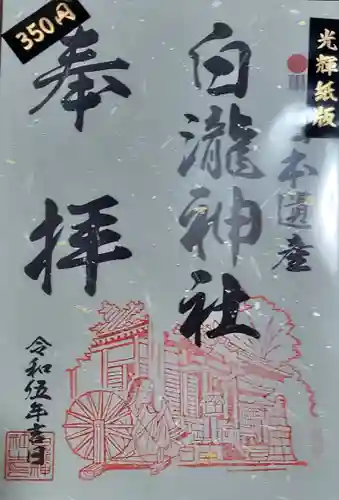 350円
光輝紙版
奉拝
白瀧神社
本遺産
令和伍年吉日